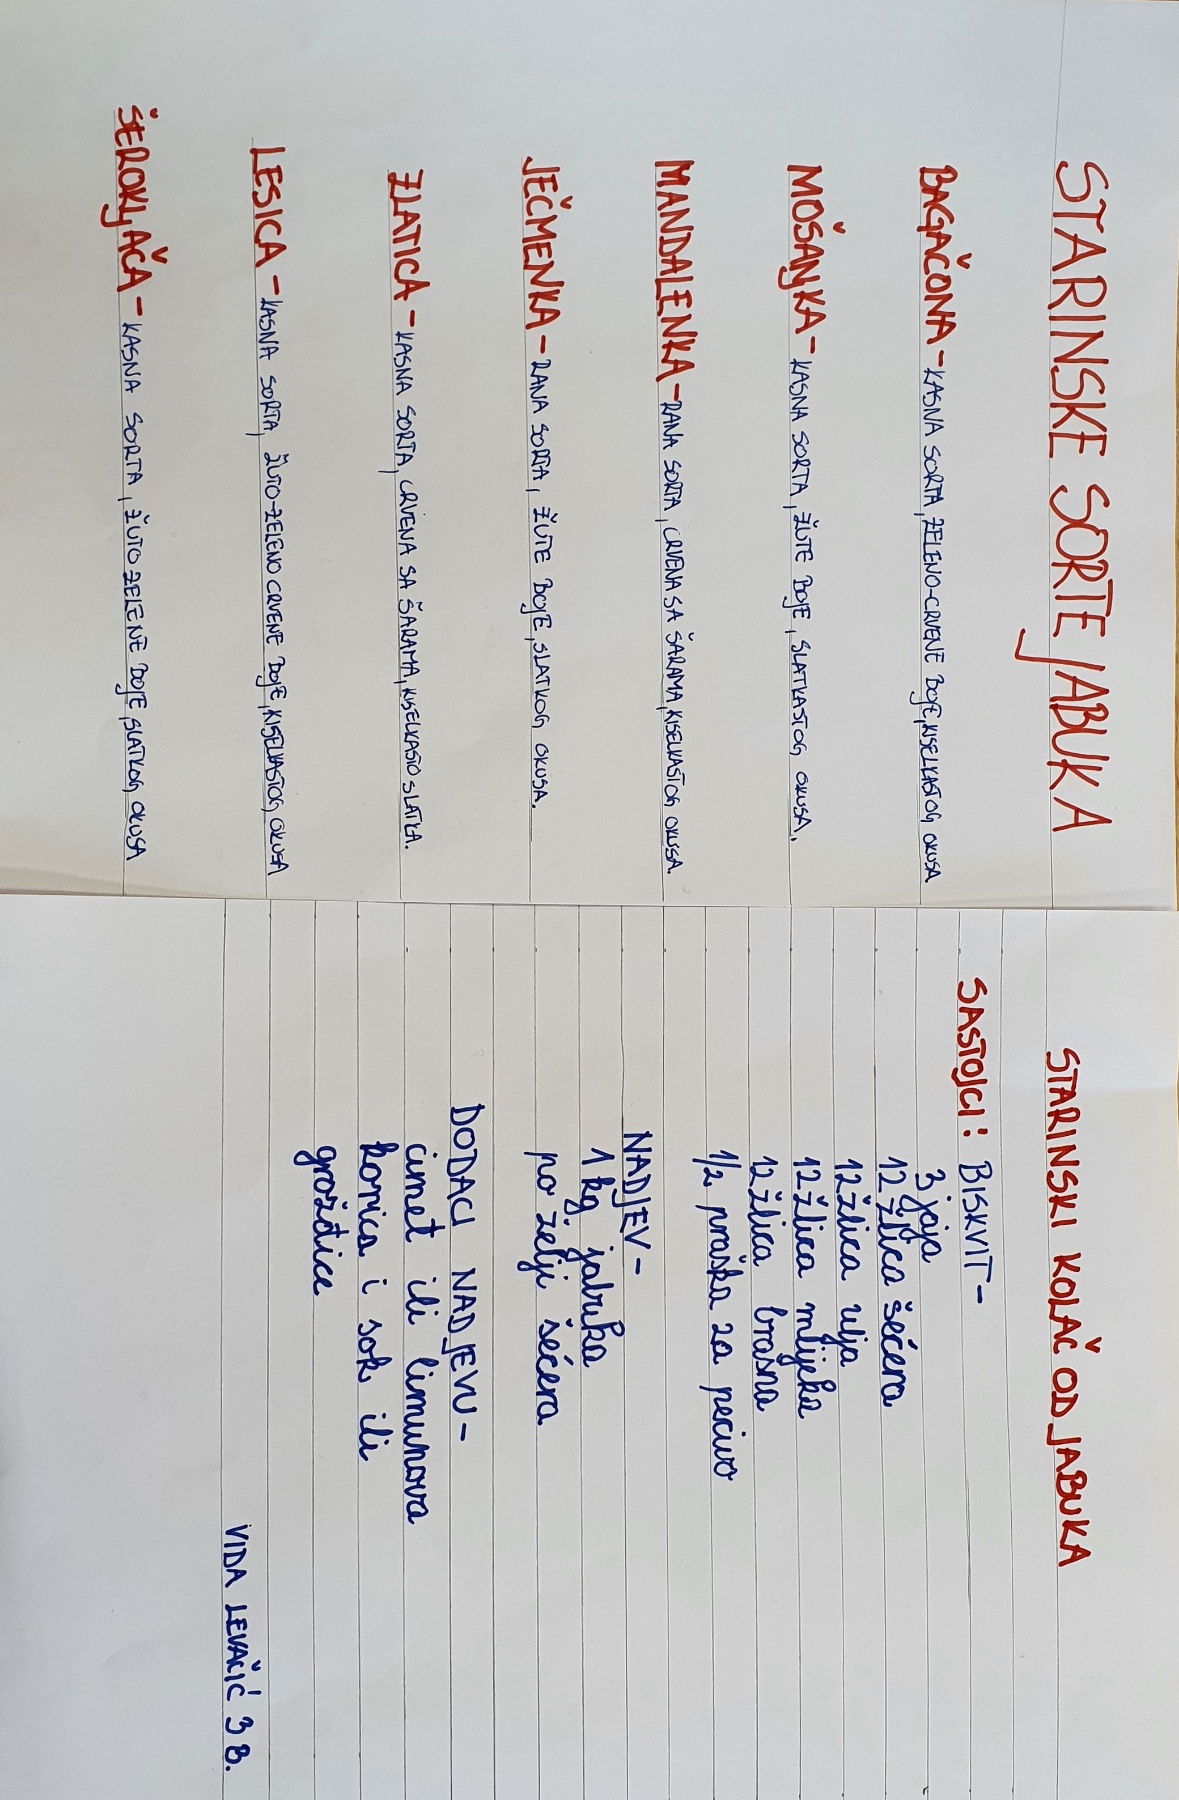 STARINSKE SORTE JABUKA
BAGAČONA - KASNA SORTA, ZELENO-CRVENE BOJE, KISELKASTOG OKUSA
MOŠANJKA - KASNA SORTA, ŽUTE BOJE, SLATKASTOG OKUSA.
MANDALENKA - RANA SORTA, CRVENA SA ŠARAMA, KISELKASTOG OKUSA.
JEČMENKA - RANA SORTA, ŽUTE BOJE, SLATKOG OKUSA.
ZLATICA - KASNA SORTA, CRVENA SA ŠARAMA, KISELKASTO SLATKA.
LESICA - KASNA SORTA, ŽUTO-ZELENO CRVENE BOJE, KISELKASTOG OKUSA
ŠEROKLJAČA - KASNA SORTA, ŽUTO ZELENE BOJE, SLATKOG OKUSA
STARINSKI KOLAČ OD JABUKA
SASTOJCI: BISKVIT -
3 jaja
12 žlica šećera
12 žlica ulja
12 žlica mlijeka
12 žlica brašna
1/2 praška za pecivo
NADJEV -
1 kg jabuka
po želji šećera
DODACI NADJEVU -
cimet ili limunova
korica i sok ili
grožđice
VIDA LEVAČIĆ 3 B.